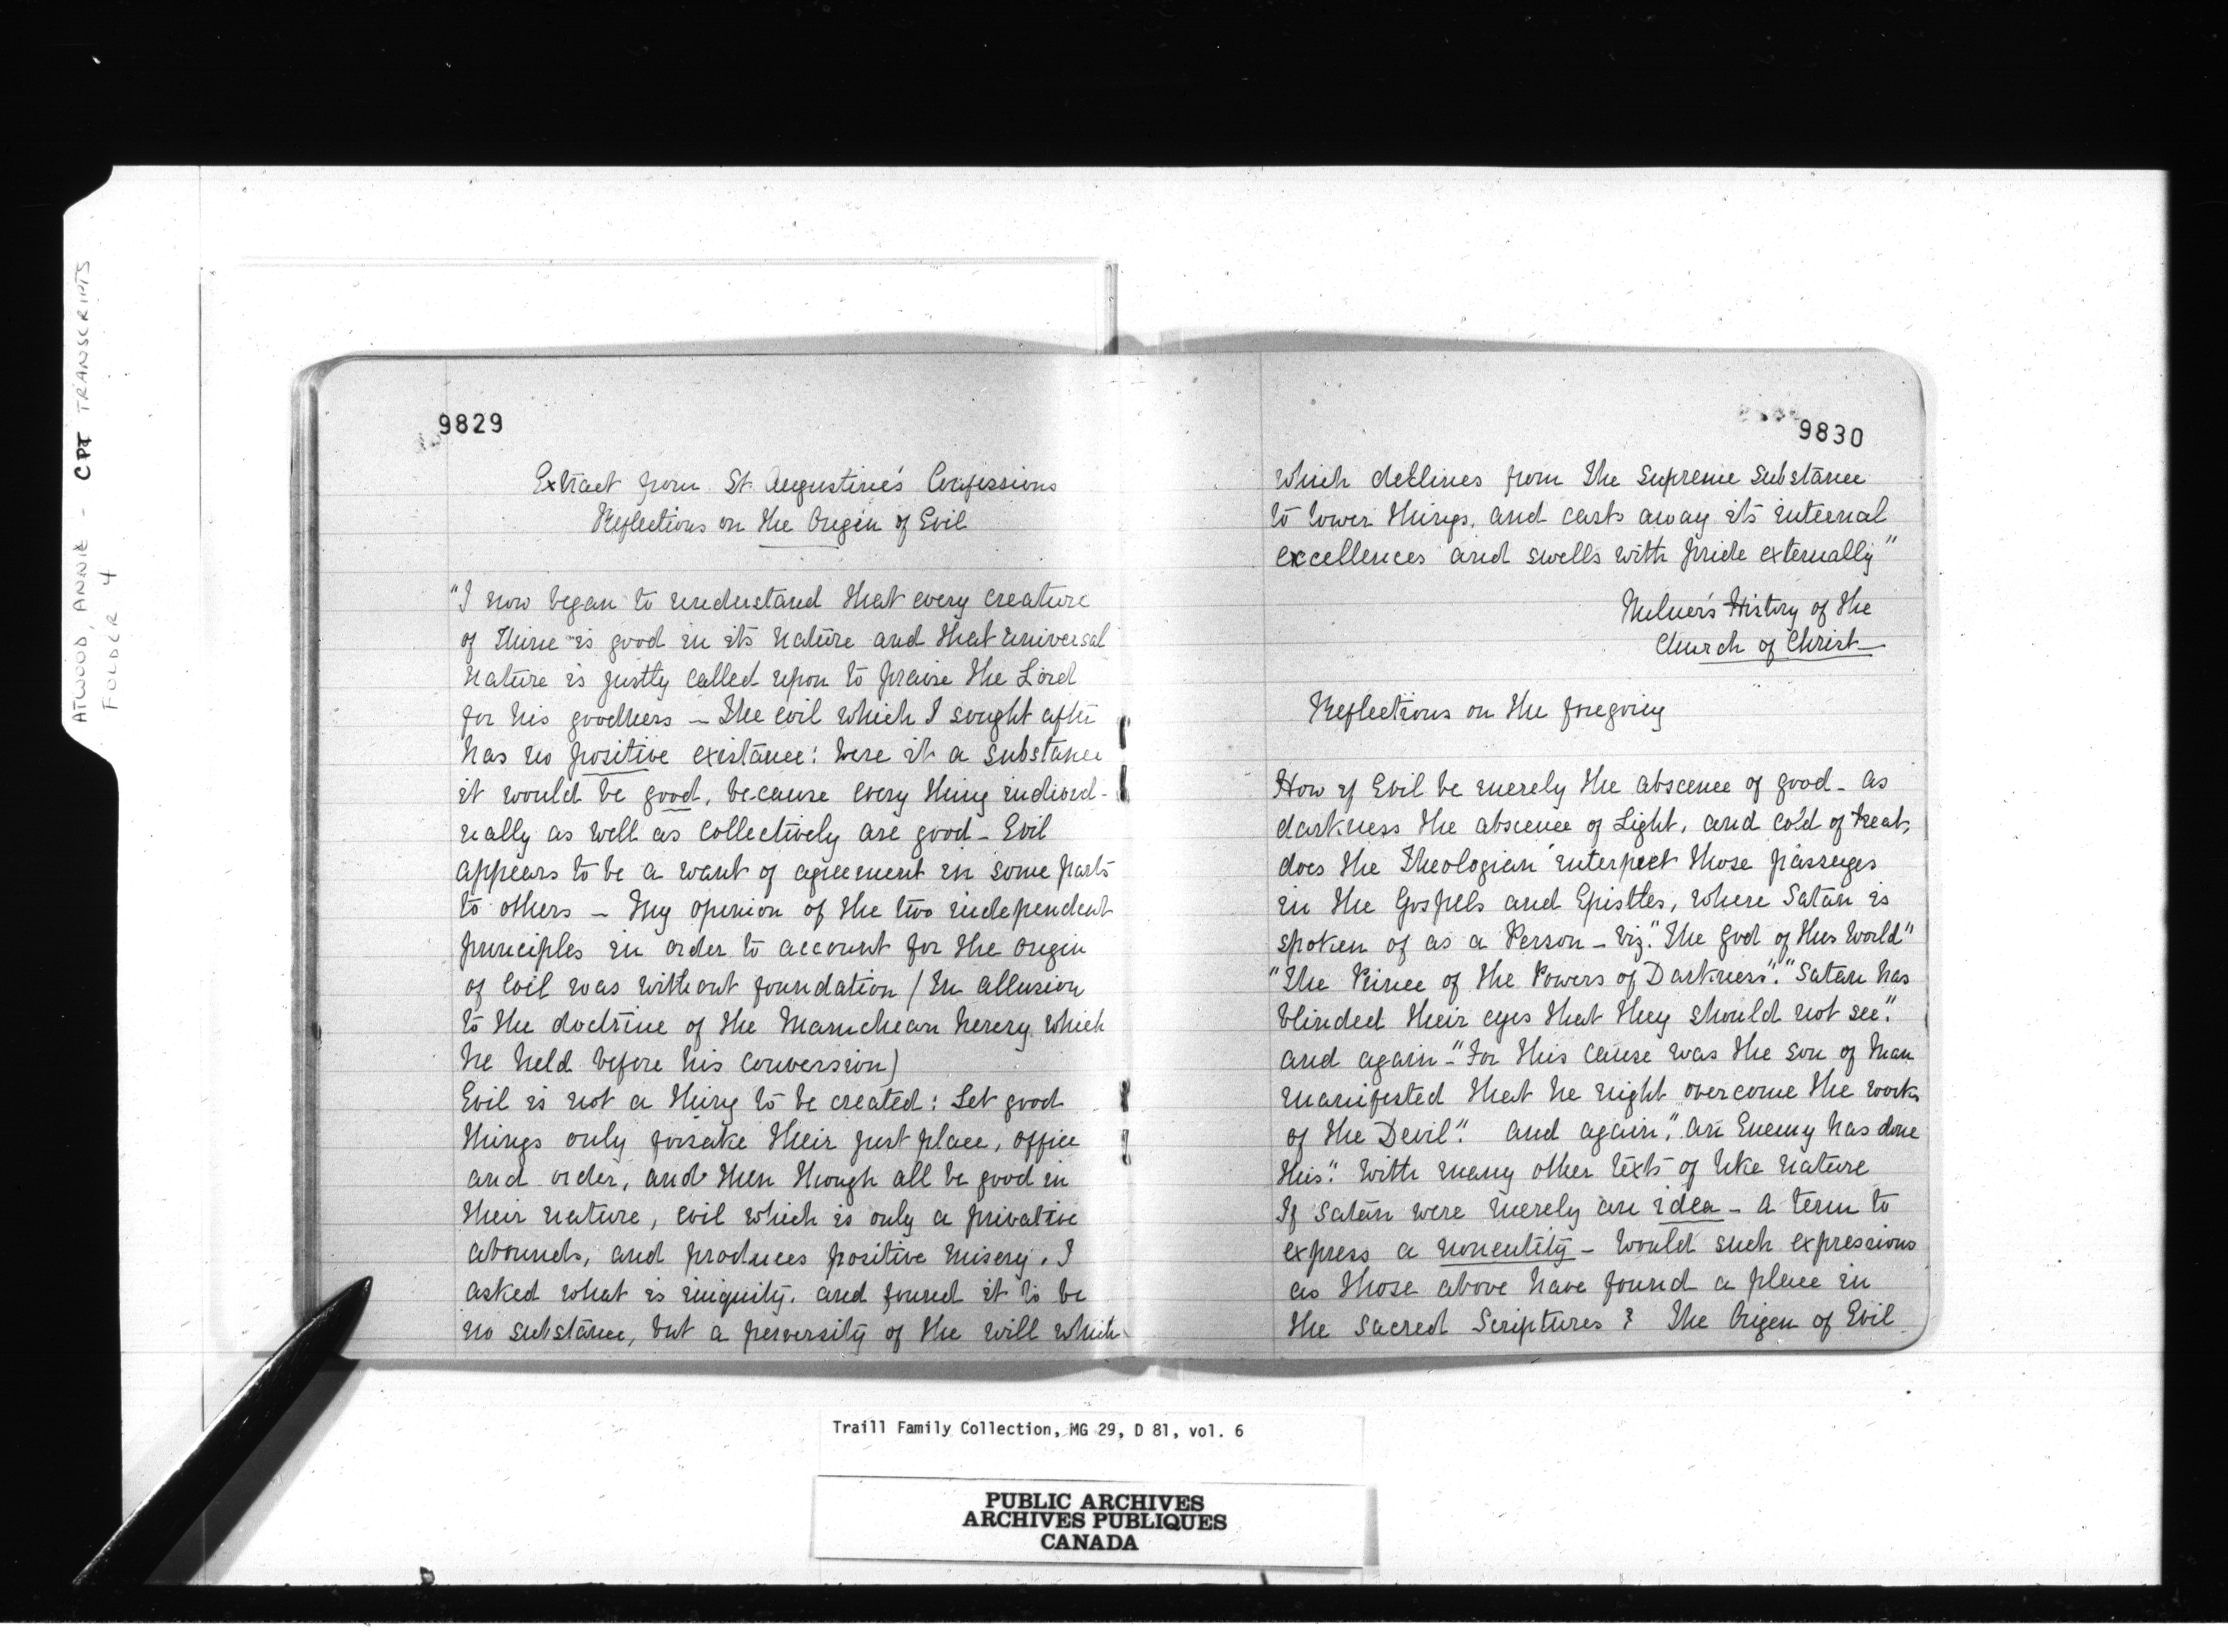 ATWOOD, ANNIE - CPT TRANSCRIPTS
FOLDER 4
9829
Extract from St. Augustine's Confessions
Reflections on the Origin of Evil
"I now began to understand that every creature
of Thine is good in its nature and that universal
nature is justly called upon to praise the Lord
for his goodness – The evil which I sought after
has no positive existance: were it a substance
it would be good, because every thing individ-
ually as well as collectively are good – Evil
appears to be a want of agreement in some parts
to others – My opinion of the two independent
principles in order to account for the origin
of Evil was without foundation (In allusion
to the doctrine of the Manichean heresy which
he held before his conversion)
Evil is not a thing to be created: Let good
things only forsake their just place, office
and order, and then though all be good in
their nature, evil which is only a privative
abounds, and produces positive misery. I
asked what is iniquity, and found it to be
no substance, but a perversity of the will which
9830
which declines from the supreme substance
to lower things, and casts away its internal
excellences and swells with pride externally"
Milner's History of the
Church of Christ –
Reflections on the foregoing
How if Evil be merely the abscence of good – as
darkness the abscence of Light, and cold of heat,
does the Theologian interpret those passages
in the Gospels and Epistles, where Satan is
spoken of as a Person – viz. "The god of this World"
"The Prince of the Powers of Darkness". "Satan has
blinded their eyes that they should not see."
and again – "For this cause was the son of Man
manifested that he might overcome the works
of the Devil". and again, "an Enemy has done
this". With many other texts of like nature
If Satan were merely an idea – a term to
express a nonentity – would such expressions
as those above have found a place in
the Sacred Scriptures? The Origen of Evil
Traill Family Collection, MG 29, D 81, vol. 6
PUBLIC ARCHIVES
ARCHIVES PUBLIQUES
CANADA